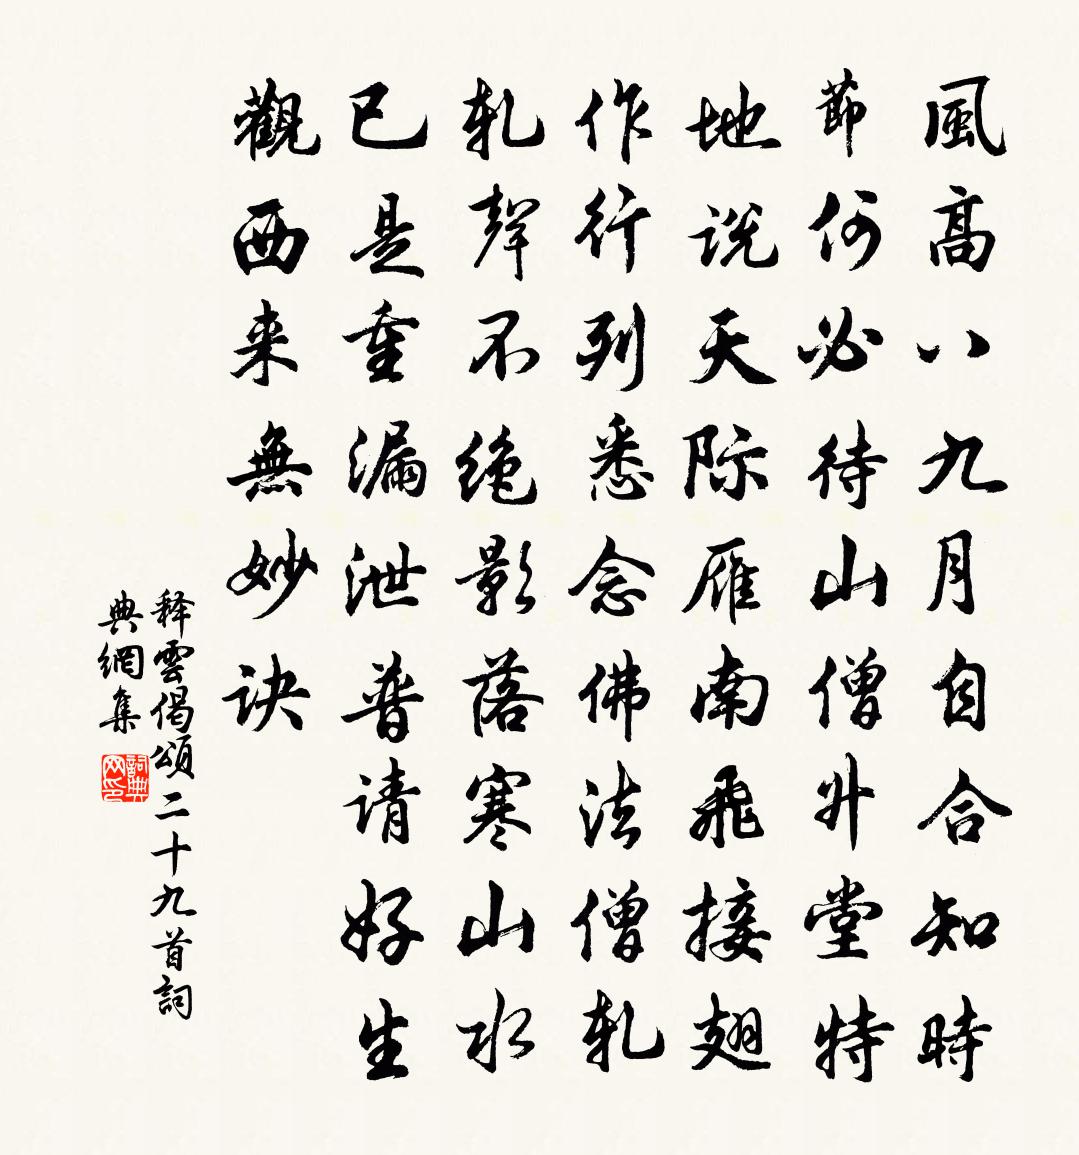 風高八九月自合知時
節何必待山僧升堂特
地说天际雁南飛接翅
作行列悉念佛法僧轧
轧聲不绝影落寒山水
已是重漏泄普请好生
觀西来無妙诀
释雲偈頌二十九首詞
典網集
詞典网印